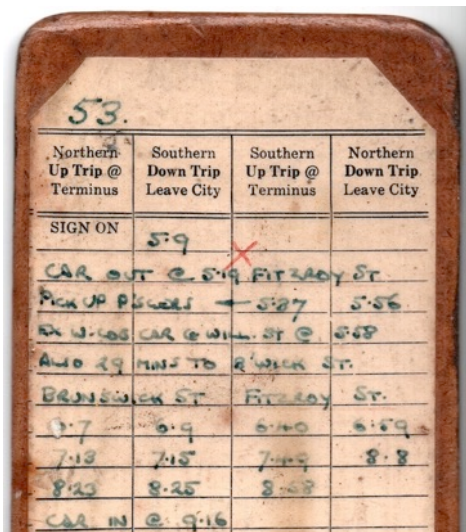 53.
Northern Up Trip @ Terminus | Southern Down Trip Leave City | Southern Up Trip @ Terminus | Northern Down Trip Leave City
SIGN ON 5·9
CAR OUT @ 5·19 FITZROY ST
PICK UP 5·37 5·56
CAR @ WILL. ST @ 5·58
ALLO 29 MINS TO B'WICK ST.
BRUNSWICK ST FITZROY ST.
6·7 6·9 6·40 6·59
7·13 7·15 7·49 8·8
8·23 8·25 8·58
CAR IN @ 9·16